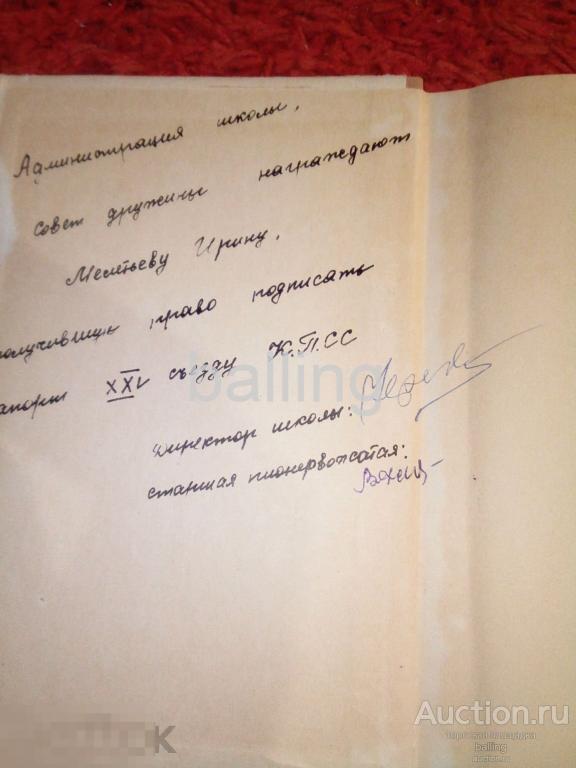 Администрация школы,
совет дружины награждают
Мелетьеву Ирину,
получившую право подписать
рапорт XXV съезду К.П.СС
директор школы:
старшая пионервожатая:
balling
Auction.ru
торговая площадка
balling
auction.ru